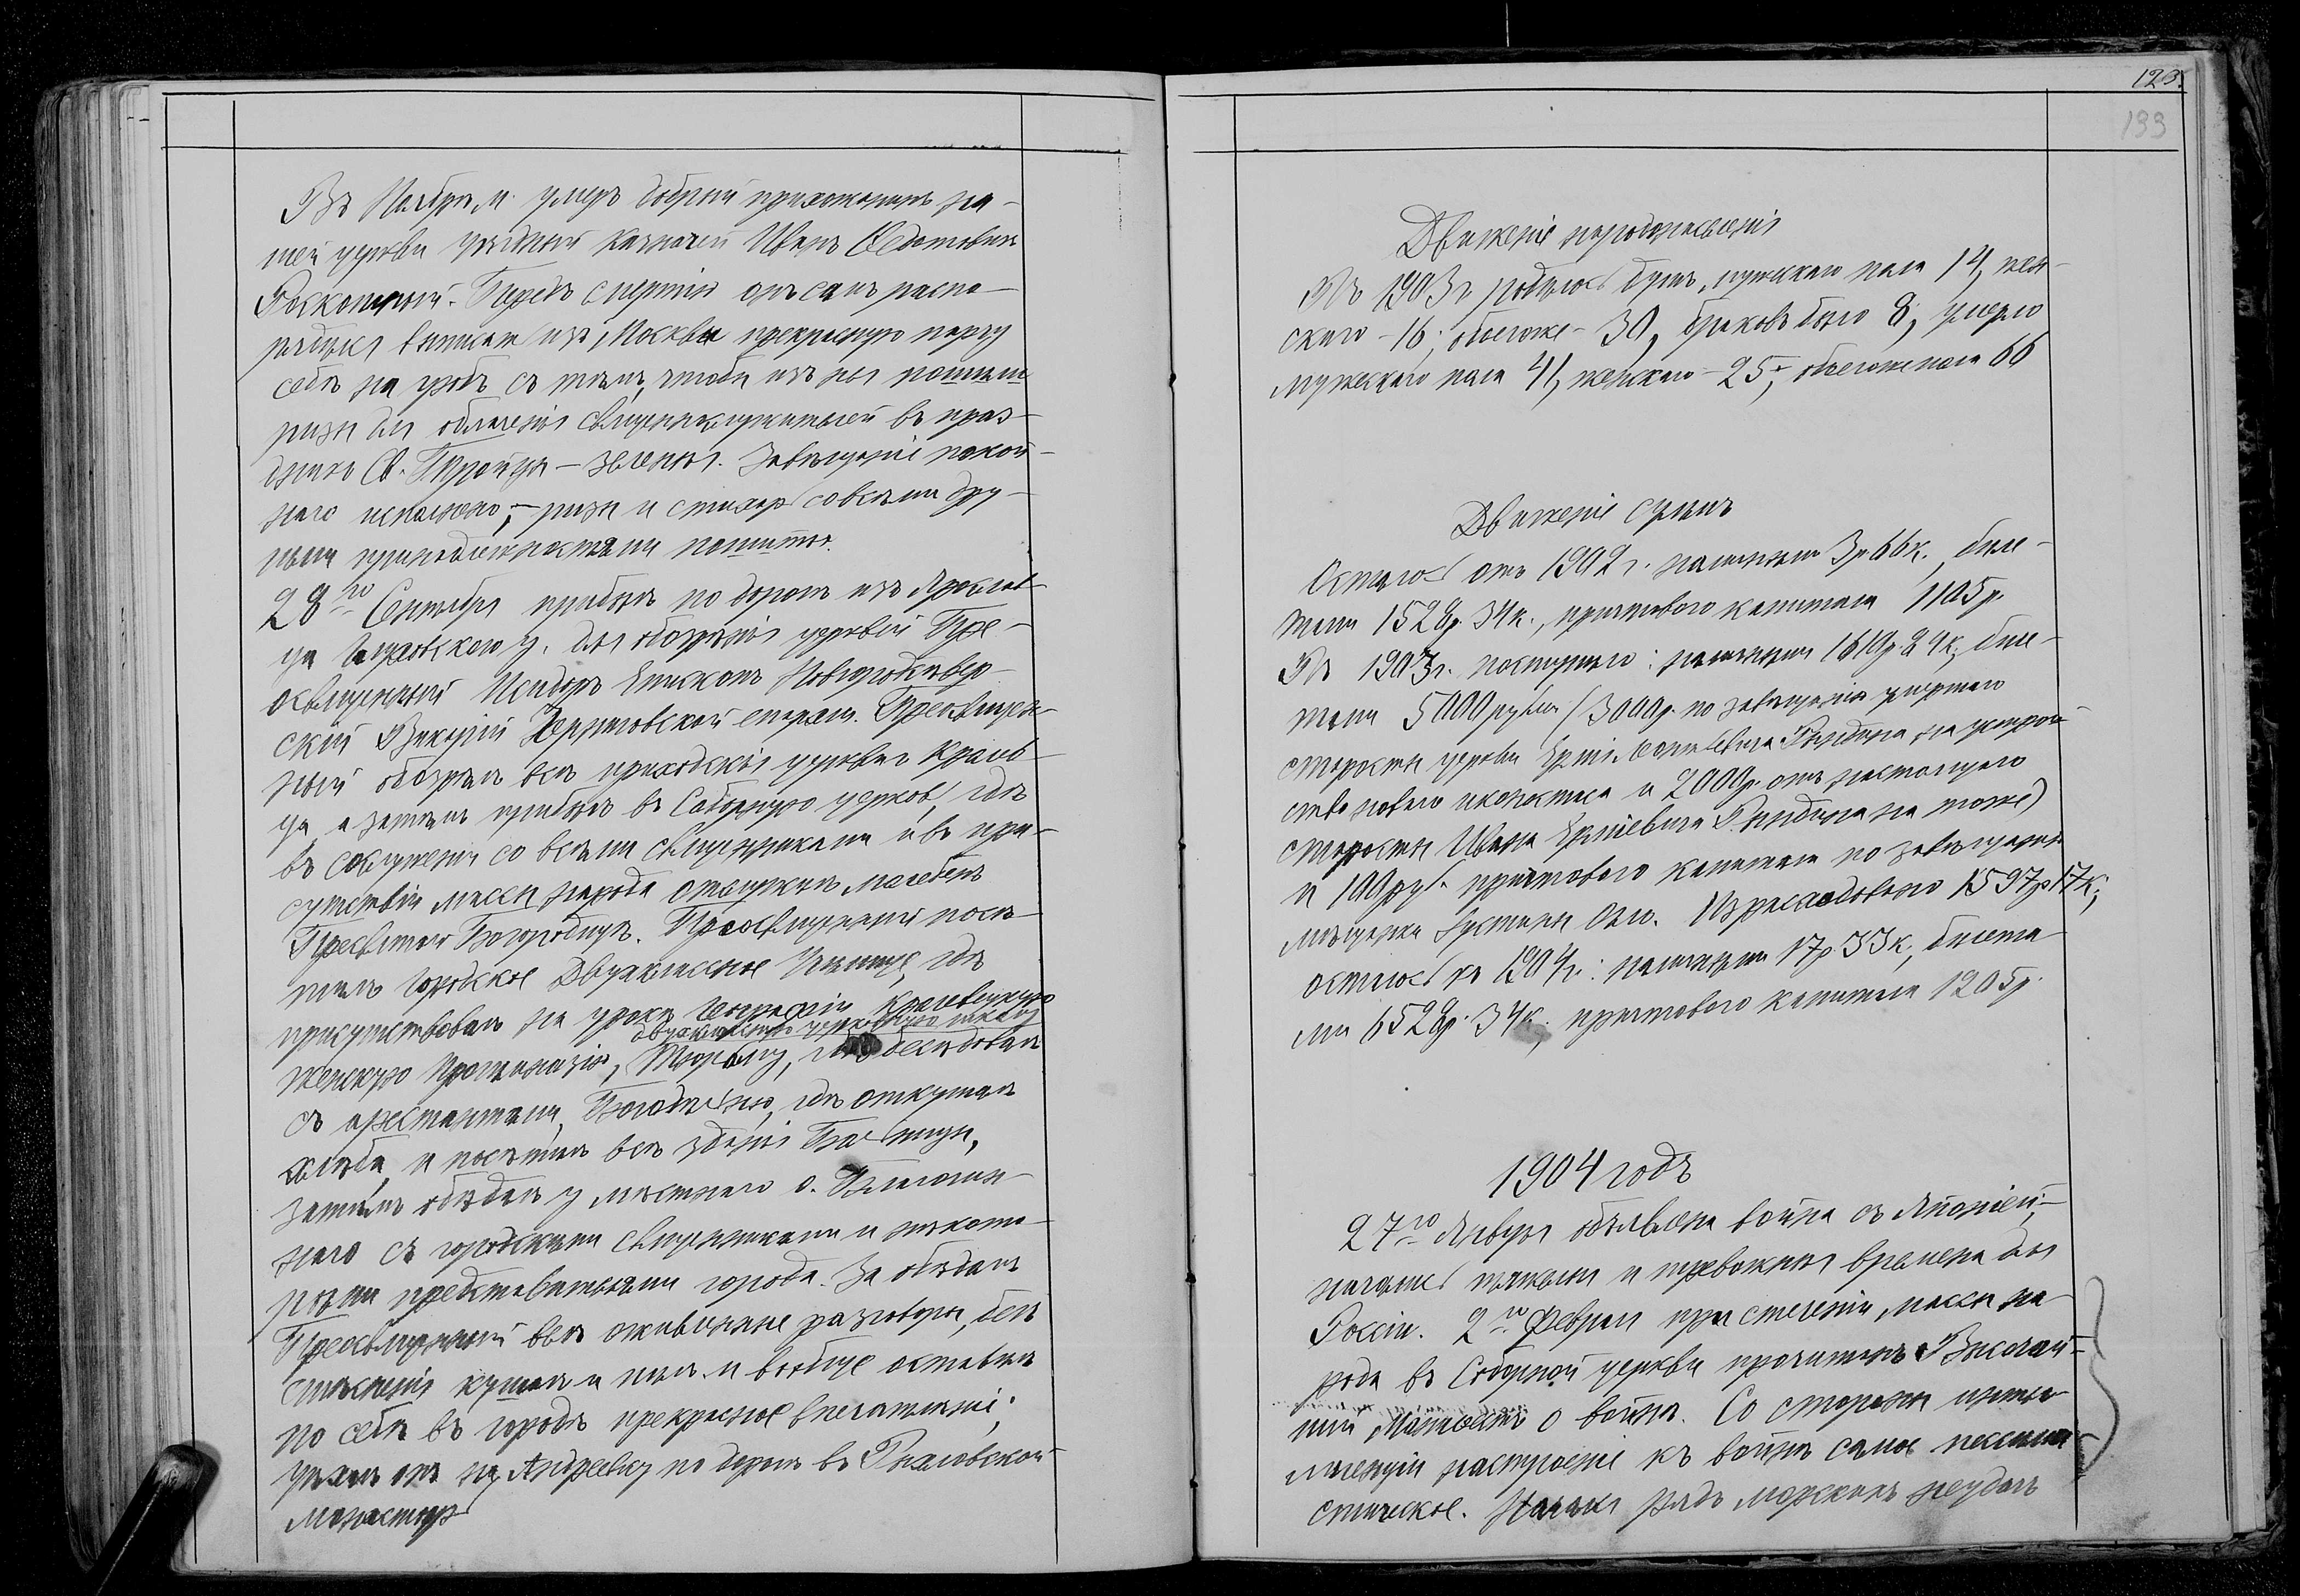 Въ Ноябрѣ м. умеръ добрый прихожанинъ на-
шей церкви уѣздный казначей Иванъ Федотовичъ
Роскошный. Передъ смертію онъ самъ распо-
рядился выписать изъ Москвы прекрасную парчу
себѣ на гробъ съ тѣмъ, чтобы изъ нея пошили
ризы для облаченія священнослужителей въ праз-
дникъ Св. Тройцы – зеленыя. Завѣщаніе покой-
наго исполнено, – ризы и стихарь со всѣми дру-
гими принадлежностями пошиты.
28го Сентября прибылъ по дорогѣ изъ Яросла-
вца Глуховского у. для обозрѣнія церквей Прео-
освященный Исидоръ Епископъ Новгородсѣвер-
скій Викарій Черниговской епархіи. Преосвящен-
ный обозрѣлъ всѣ приходскія церкви Кролев-
ца, а затѣмъ прибылъ въ Соборную церковь, гдѣ
въ сослуженіи со всѣми священниками и въ при-
сутствіи массы народа отслужилъ молебенъ
Пресвятой Богородицѣ. Преосвященный посѣ-
тилъ Городское Двухклассное Училище, гдѣ
присутствовалъ на урокѣ Географіи Кролевецкую
двухклассную церковную школу
женскую Прогимназію, Тюрьму, гдѣ бесѣдовалъ
съ арестантами, Богодѣльню, гдѣ откушалъ
хлѣба, и посѣтилъ всѣ зданія Больницы,
затѣмъ обѣдалъ у мѣстнаго о. Благочин-
наго съ городскими священниками и нѣкото-
рыми представителями города. За обѣдомъ
Преосвященный велъ оживленные разговоры, безъ
стѣсненія кушалъ и пилъ и вообще оставилъ
по себѣ въ городѣ прекрасное впечатлѣніе;
уѣхалъ онъ на Андреевку по дорогѣ въ Рыхловской
монастырь
123.
133
Движеніе народонаселенія
Въ 1903 г. родилось душъ, мужскаго пола 14, жен-
скаго – 16; обоегоже – 30, браковъ было 8, умерло
мужескаго пола 41, женскаго – 25; обоегоже пола 66
Движеніе суммъ
Осталось отъ 1902 г. наличными 3 р 66 к. биле-
тами 1528 р. 34 к., причтоваго капитала 1105 р.
Въ 1903 г. поступило: наличными 1610 р. 84 к., биле-
тами 5000 рублей (3000 р. по завѣщанію умершаго
старосты церкви на устрой-
ство новаго иконостаса и 2000 р. отъ настоящаго
старосты Ивана на тоже)
и 100 руб. причтоваго капитала по завѣщанію
мѣщанки Израсходовано 1597 р 17 к.;
осталось къ 1904 г.: наличными 17 р 33 к., билета-
ми 6528 р. 34 к., причтоваго капитала 1205 р.
1904 годъ
27го Января объявлена война съ Японіей;
начались тяжелыя и тревожныя времена для
Россіи. 2го Февраля при стеченіи массы на-
рода въ Соборной церкви прочитанъ Высочай-
шій Манифестъ о войнѣ. Со стороны интел-
лигенціи настроеніе къ войнѣ самое пессими-
стическое. Начался рядъ морскихъ неудачъ